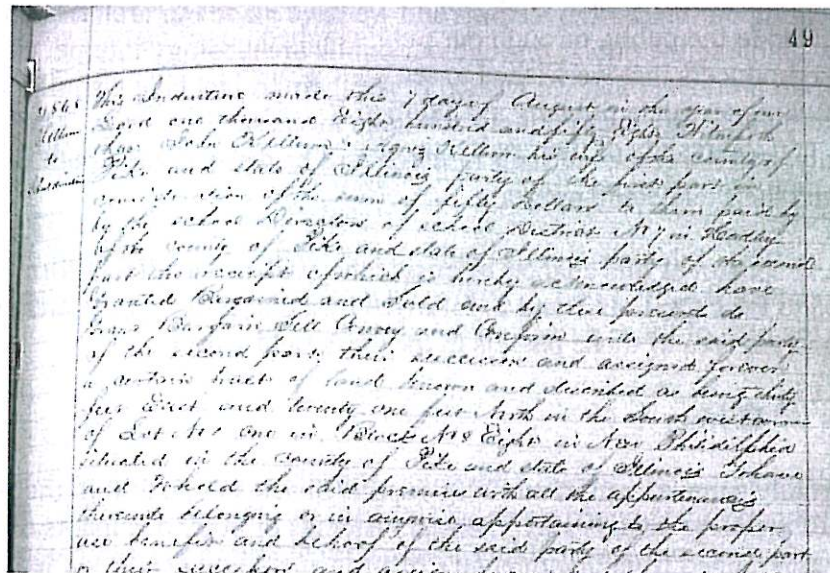 49
This Indenture made this 7 day of August in the year of our
Lord one thousand Eight hundred and fifty Eight Witnesseth
that John Kellum & Kellum his wife of the county of
Pike and state of Illinois party of the first part in
consideration of the sum of fifty Dollars to them paid by
by the school Directors of school District No 7 in Hadley
of the county of Pike and state of Illinois party of the second
part the receipt of which is hereby acknowledged have
Granted Bargained and Sold and by these presents do
Grant Bargain Sell Convey and Confirm unto the said party
of the second party their successors and assigns forever
a certain tract of land known and described as being thirty
feet East and twenty one feet North in the South west corner
of Lot No 1 One in Block No 8 Eight in New Philidelphia
situated in the County of Pike and state of Illinois To have
and To hold the said premises with all the appurtenances
thereunto belonging or in anywise appertaining to the proper
use benefit and behoof of the said party of the second part
or their successors and